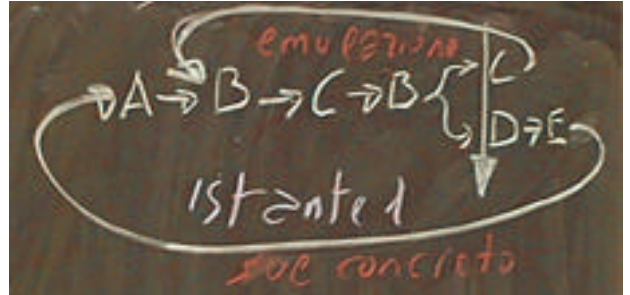 emulazione
A → B → C → B { C
D → E
istante 1
concreto